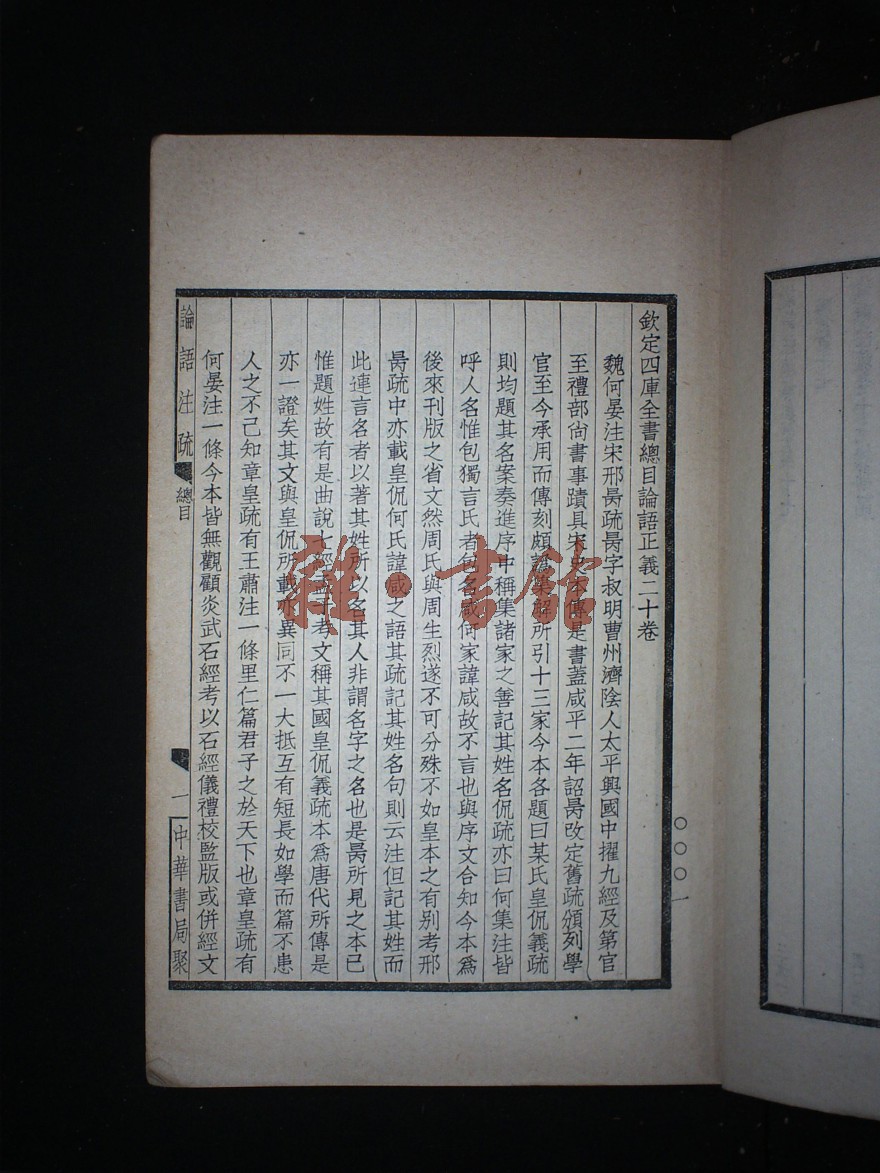 欽定四庫全書總目論語正義二十卷
魏何晏注宋邢昺疏昺字叔明曹州濟陰人太平興國中擢九經及第官
至禮部尙書事蹟具宋史本傳是書蓋咸平二年詔昺改定舊疏頒列學
官至今承用而傳刻頗譌集解所引十三家今本各題曰某氏皇侃義疏
則均題其名案奏進序中稱集諸家之善記其姓名侃疏亦曰何集注皆
呼人名惟包獨言氏者包名咸何家諱咸故不言也與序文合知今本爲
後來刊版之省文然周氏與周生烈遂不可分殊不如皇本之有别考邢
昺疏中亦載皇侃何氏諱咸之語其疏記其姓名句則云注但記其姓而
此連言名者以著其姓所以名其人非謂名字之名也是昺所見之本已
惟題姓故有是曲說七經孟子考文稱其國皇侃義疏本爲唐代所傳是
亦一證矣其文與皇侃所載亦異同不一大抵互有短長如學而篇不患
人之不己知章皇疏有王肅注一條里仁篇君子之於天下也章皇疏有
何晏注一條今本皆無觀顧炎武石經考以石經儀禮校監版或併經文
論語注疏
總目
一
中華書局聚
〇〇〇一
雜·書館